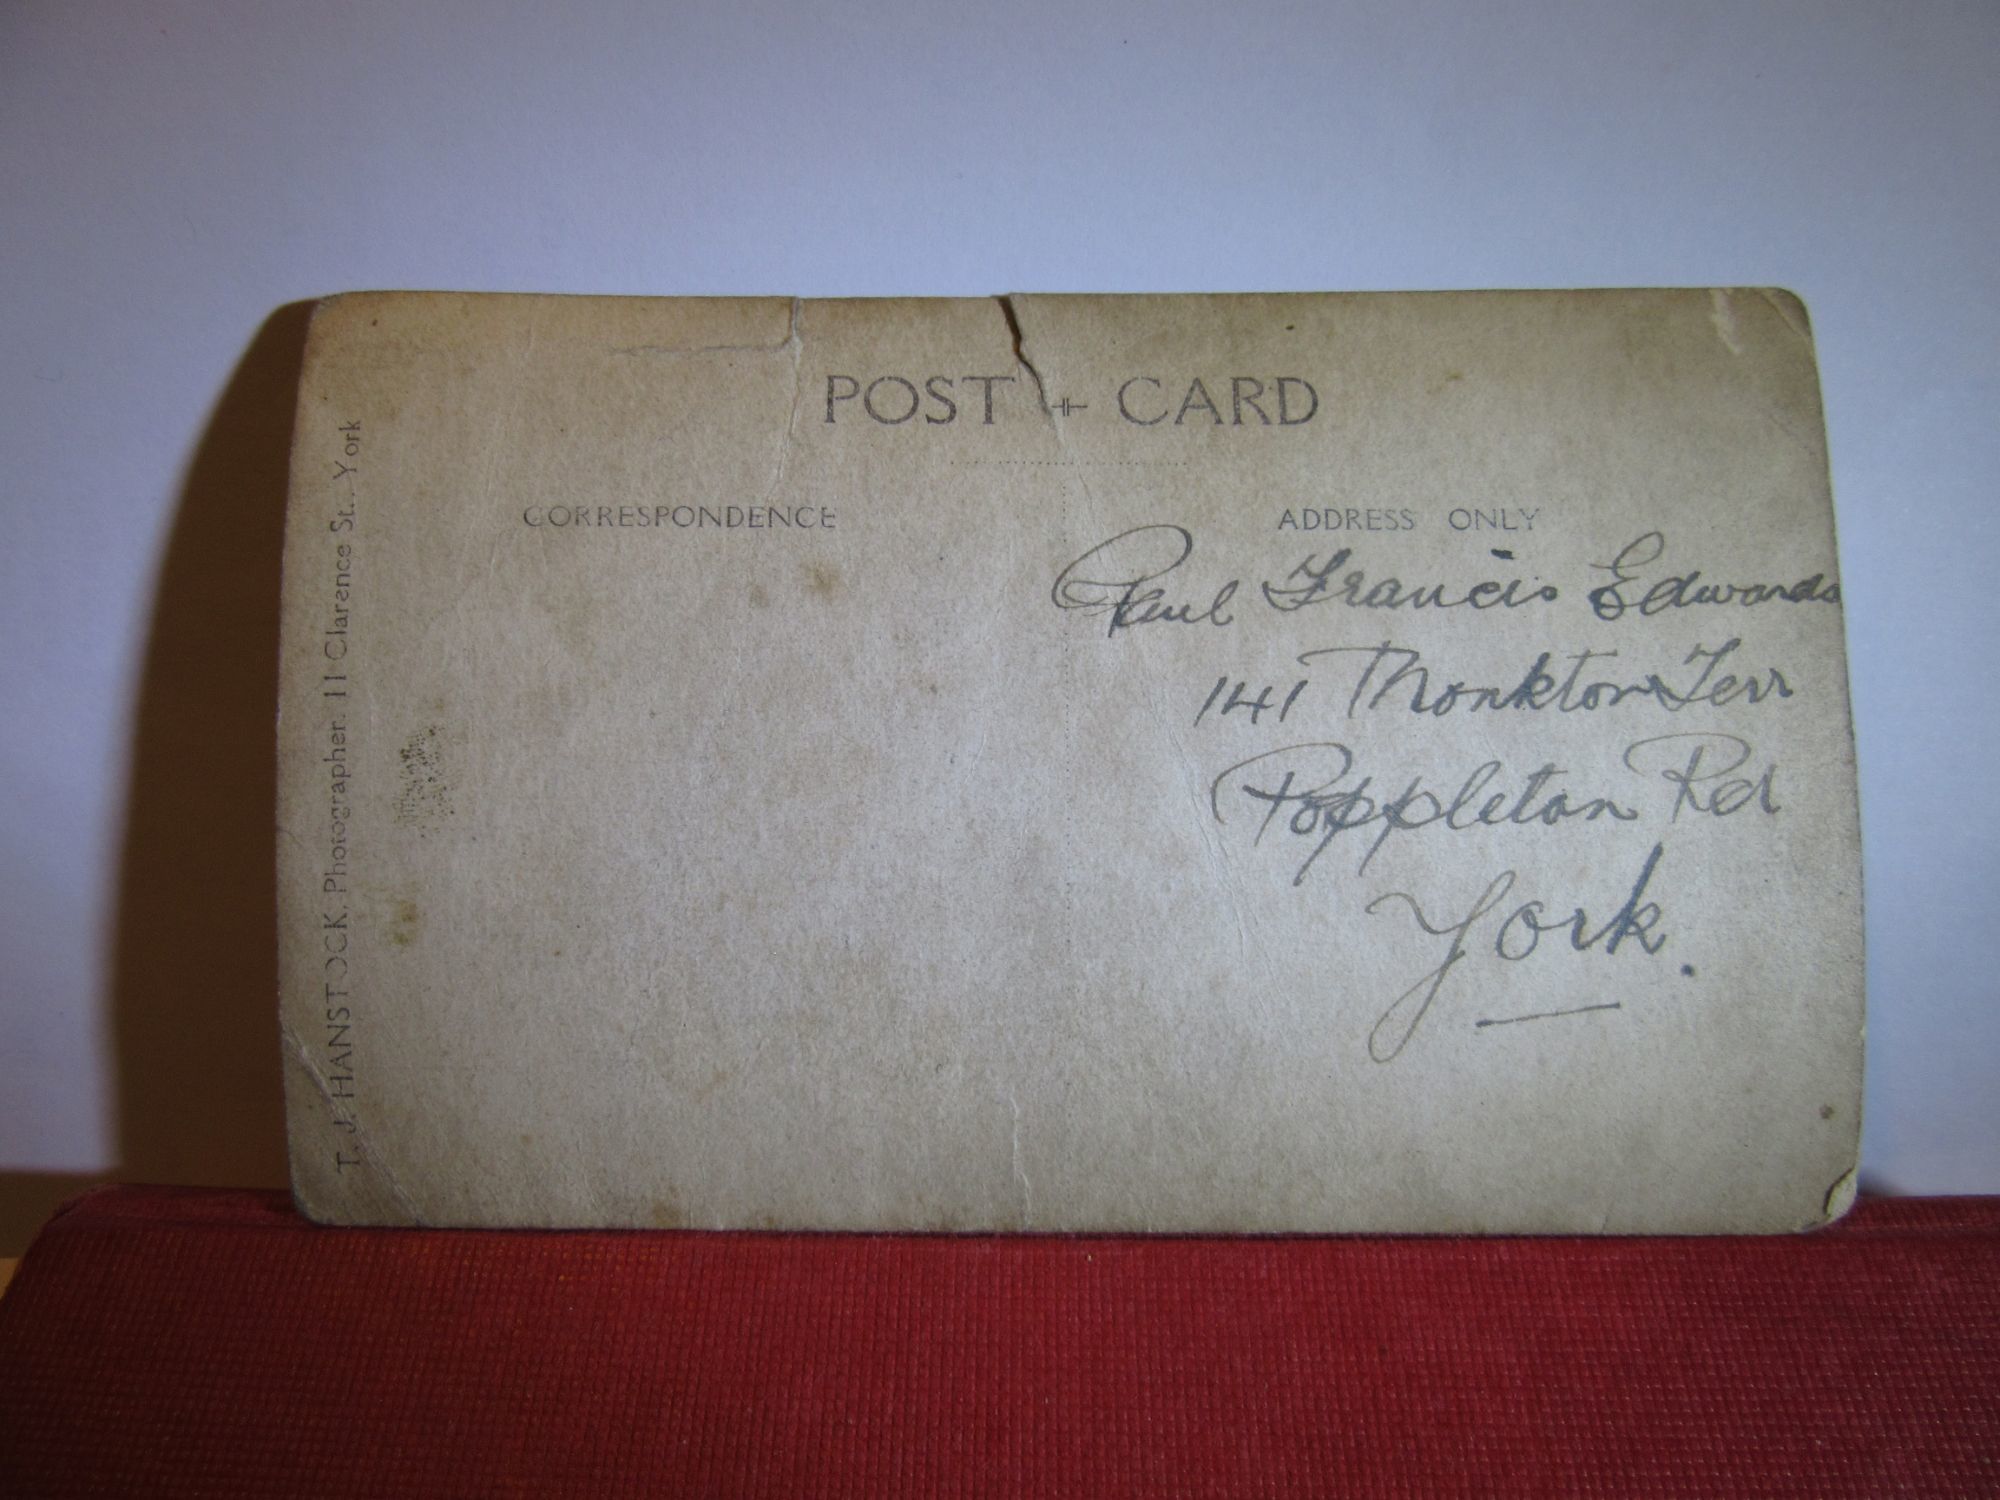 POST + CARD
CORRESPONDENCE
ADDRESS ONLY
Paul Francis Edwards
141 Monkton Terr
Poppleton Rd
York.
T. J. HANSTOCK, Photographer. 11 Clarence St., York